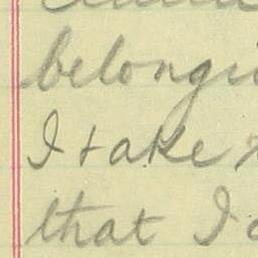 belongi
I take
that I